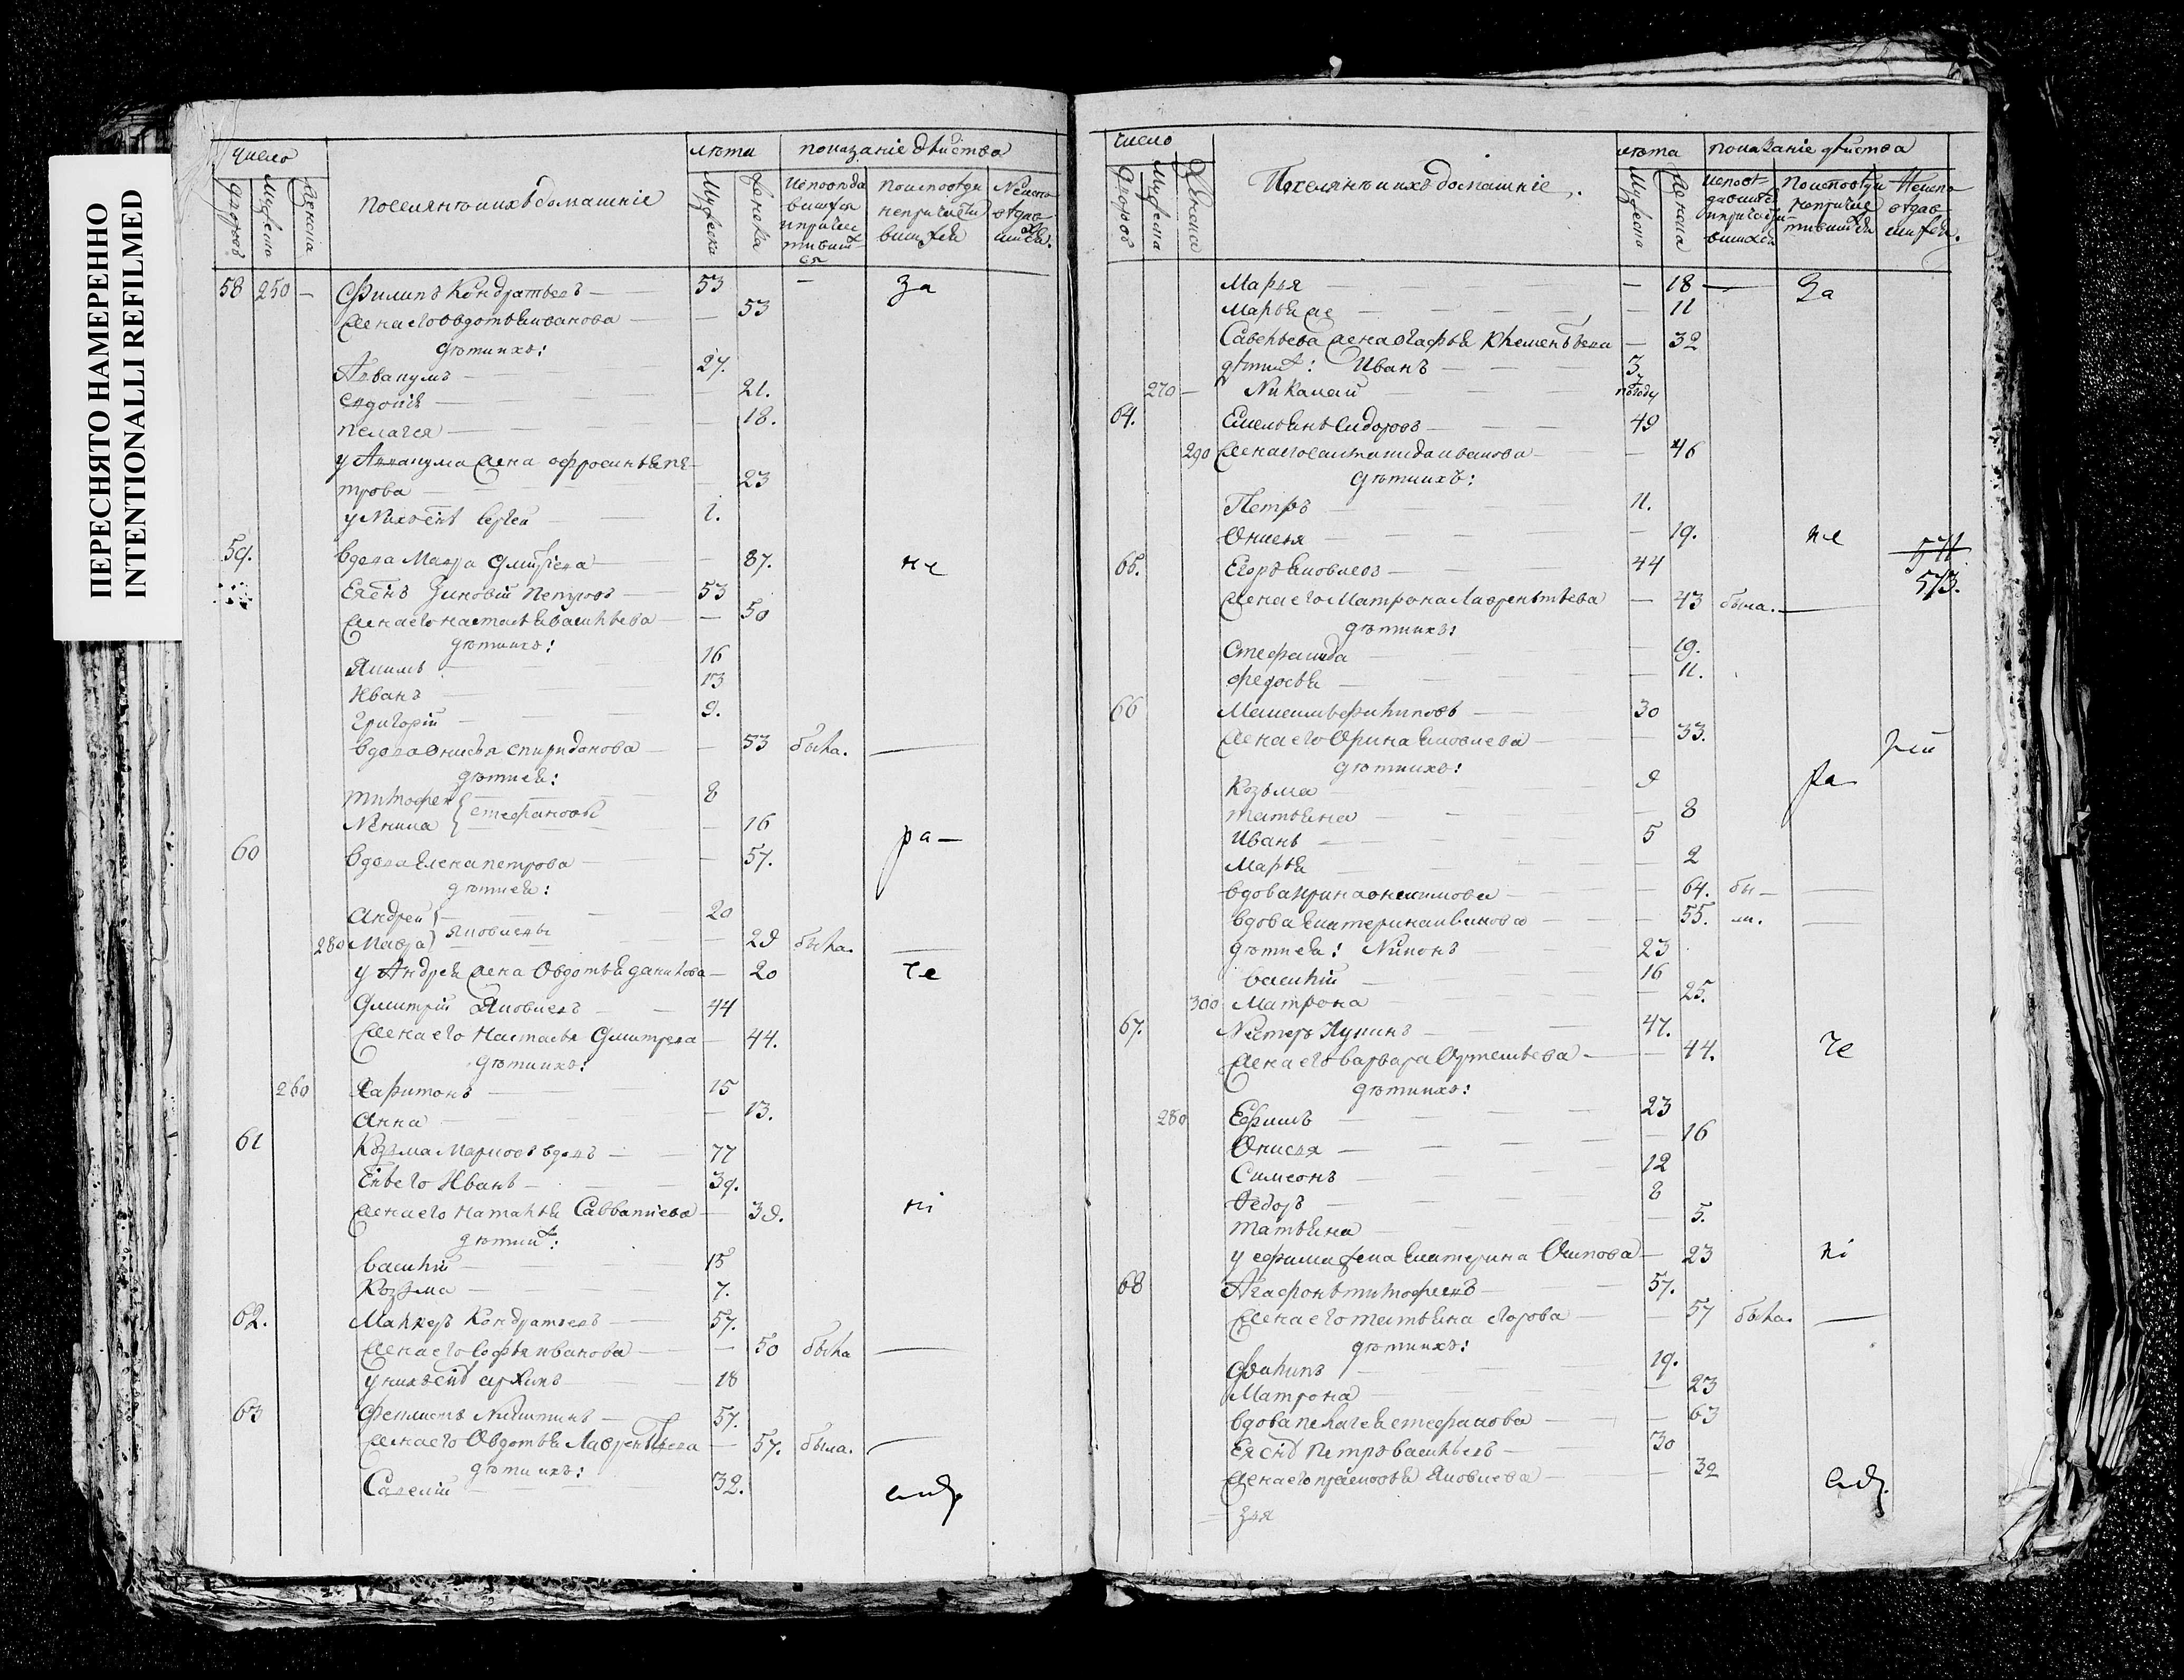 ПЕРЕСНЯТО НАМЕРЕННО
INTENTIONALLI REFILMED
число
лѣта
показаніе дѣйства
дворовъ
мужеска
женска
поселянѣ и ихъ домашніе
Мужеска
женска
58 250 — Филипъ Кондратьевъ — 53 — за
жена его Овдотья иванова — 53
дѣти ихъ:
Аввакумъ — 27.
Евдокія — 21.
пелагея — 18.
у Аввакума жена офросинья пе-
трова — 23
у нихъ снъ Сергей — 1.
59. вдова Мавра Дмитрева — 87. не
Ея снъ Зиновій петровъ — 53
жена его настасья васильева — 50
дѣти ихъ:
Якимъ — 16
Иванъ — 13
григорій — 9.
вдова онисья спиридонова — 53 была. —
дѣти ея:
тимофей — 8
стефановы
Ненила — 16
60 вдова Елена петрова — 57. ра—
дѣти ея:
андрей — 20
яковлевы
280 Мавра — 29 была. —
у Андрея жена Овдотья данилова — 20 че
Дмитрій Яковлевъ — 44
жена его Настасья Дмитрева — 44.
дѣти ихъ:
260 Харитонъ — 15
Анна — 13.
61 Козма Марковъ вдовъ — 77
Снъ его Иванъ — 39.
жена его наталья Савватиева — 39. ні
дѣти их:
василій — 15
Козма — 7.
62. Маркеръ Кондратьевъ — 57.
жена его Софья иванова — 50 была —
у нихъ снъ архипъ — 18
63 Феклистъ Никитинъ — 57.
жена его Овдотья Лаврентьева — 57. была. —
дѣти ихъ:
Савелій — 32.
число
лѣта
показаніе дѣйства
дворовъ
мужеска
женска
Поселянѣ и ихъ домашніе
Мужеска
женска
Марья — 18 — за
Марья же — 11
Савельева жена Агафья Клементьева — 32
дѣти их: Иванъ — 3
270 — Николай — полгоду
64. Емельянъ Сидоровъ — 49
290 жена его Соломонида иванова — 46
дѣти ихъ:
Петръ — 11.
Онисья — 19. не
571
573.
65. Егоръ яковлевъ — 44
жена его Матрона Лаврентьева — 43 была. —
дѣти ихъ:
Стефанида — 19.
федосья — 11.
66 Максимъ филиповъ — 30
жена его Орина яковлева — 33.
дѣти ихъ:
Козьма — 9 ра
татьяна — 8
Иванъ — 5
Марья — 2
вдова ирина онисимова — 64. бы— —
вдова Екатерина иванова — 55. ла. —
дѣти ея: Никонъ — 23
василій — 16
300 Матрона — 25.
67. Нестеръ Купинъ — 47.
жена его варвара Артемьева — 44. че
дѣти ихъ:
280 Ефимъ — 23
Онисья — 16
Симеонъ — 12
Федоръ — 8
татьяна — 5.
у ефима жена Екатерина Осипова — 23 ні
68 Агафонъ тимофеевъ — 57.
жена его татьяна егорова — 57 была. —
дѣти ихъ:
филипъ — 19.
Матрона — 23
вдова пелагея стефанова — 63
Ея снъ Петръ васильевъ — 30
жена его прасковья яковлева — 32